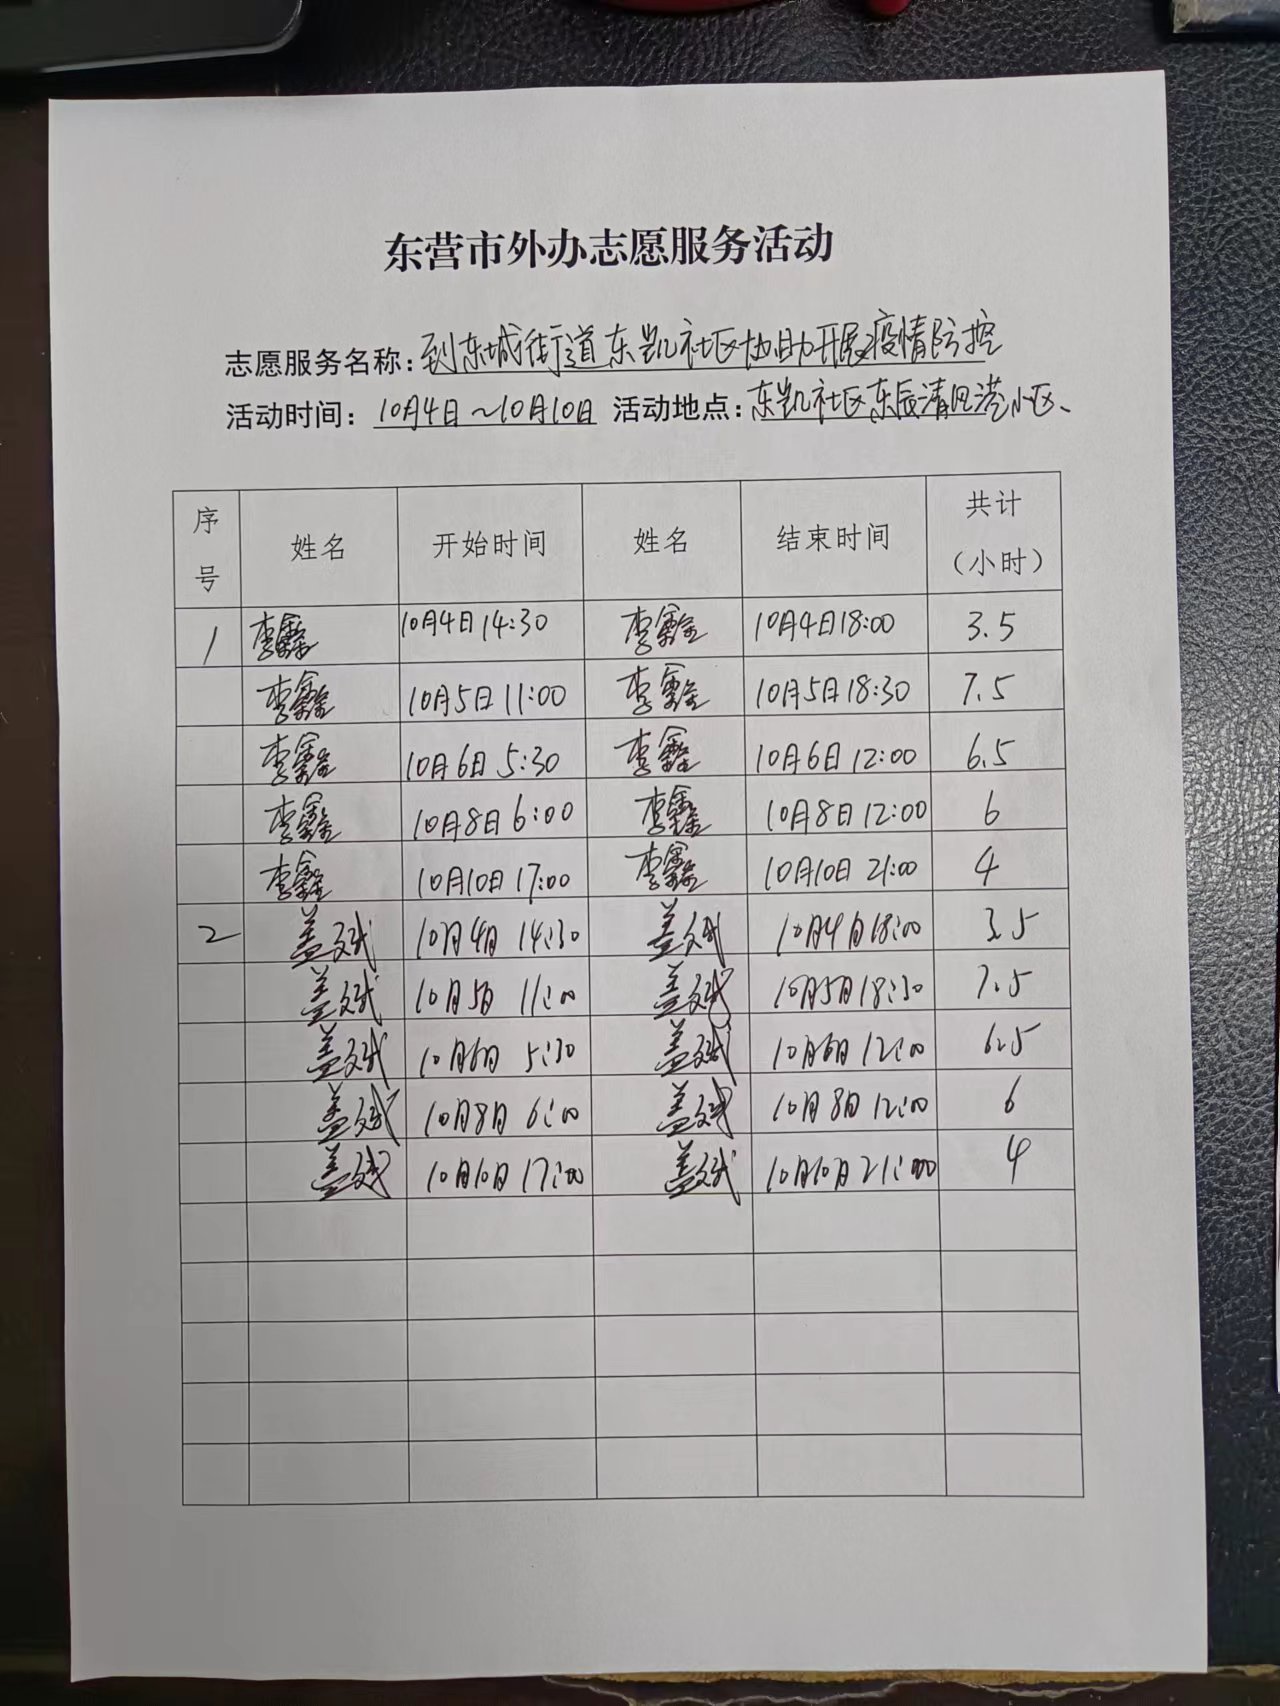 东营市外办志愿服务活动
志愿服务名称：到东城街道东凯社区协助开展疫情防控
活动时间：10月4日～10月10日 活动地点：东凯社区东辰清风港小区、
序号 姓名 开始时间 姓名 结束时间 共计（小时）
1 李鑫 10月4日14:30 李鑫 10月4日18:00 3.5
李鑫 10月5日11:00 李鑫 10月5日18:30 7.5
李鑫 10月6日5:30 李鑫 10月6日12:00 6.5
李鑫 10月8日6:00 李鑫 10月8日12:00 6
李鑫 10月10日17:00 李鑫 10月10日21:00 4
2 盖斌 10月4日 14:30 盖斌 10月4日18:00 3.5
盖斌 10月5日 11:00 盖斌 10月5日18:30 7.5
盖斌 10月6日 5:30 盖斌 10月6日12:00 6.5
盖斌 10月8日 6:00 盖斌 10月8日12:00 6
盖斌 10月10日 17:00 盖斌 10月10日21:00 4